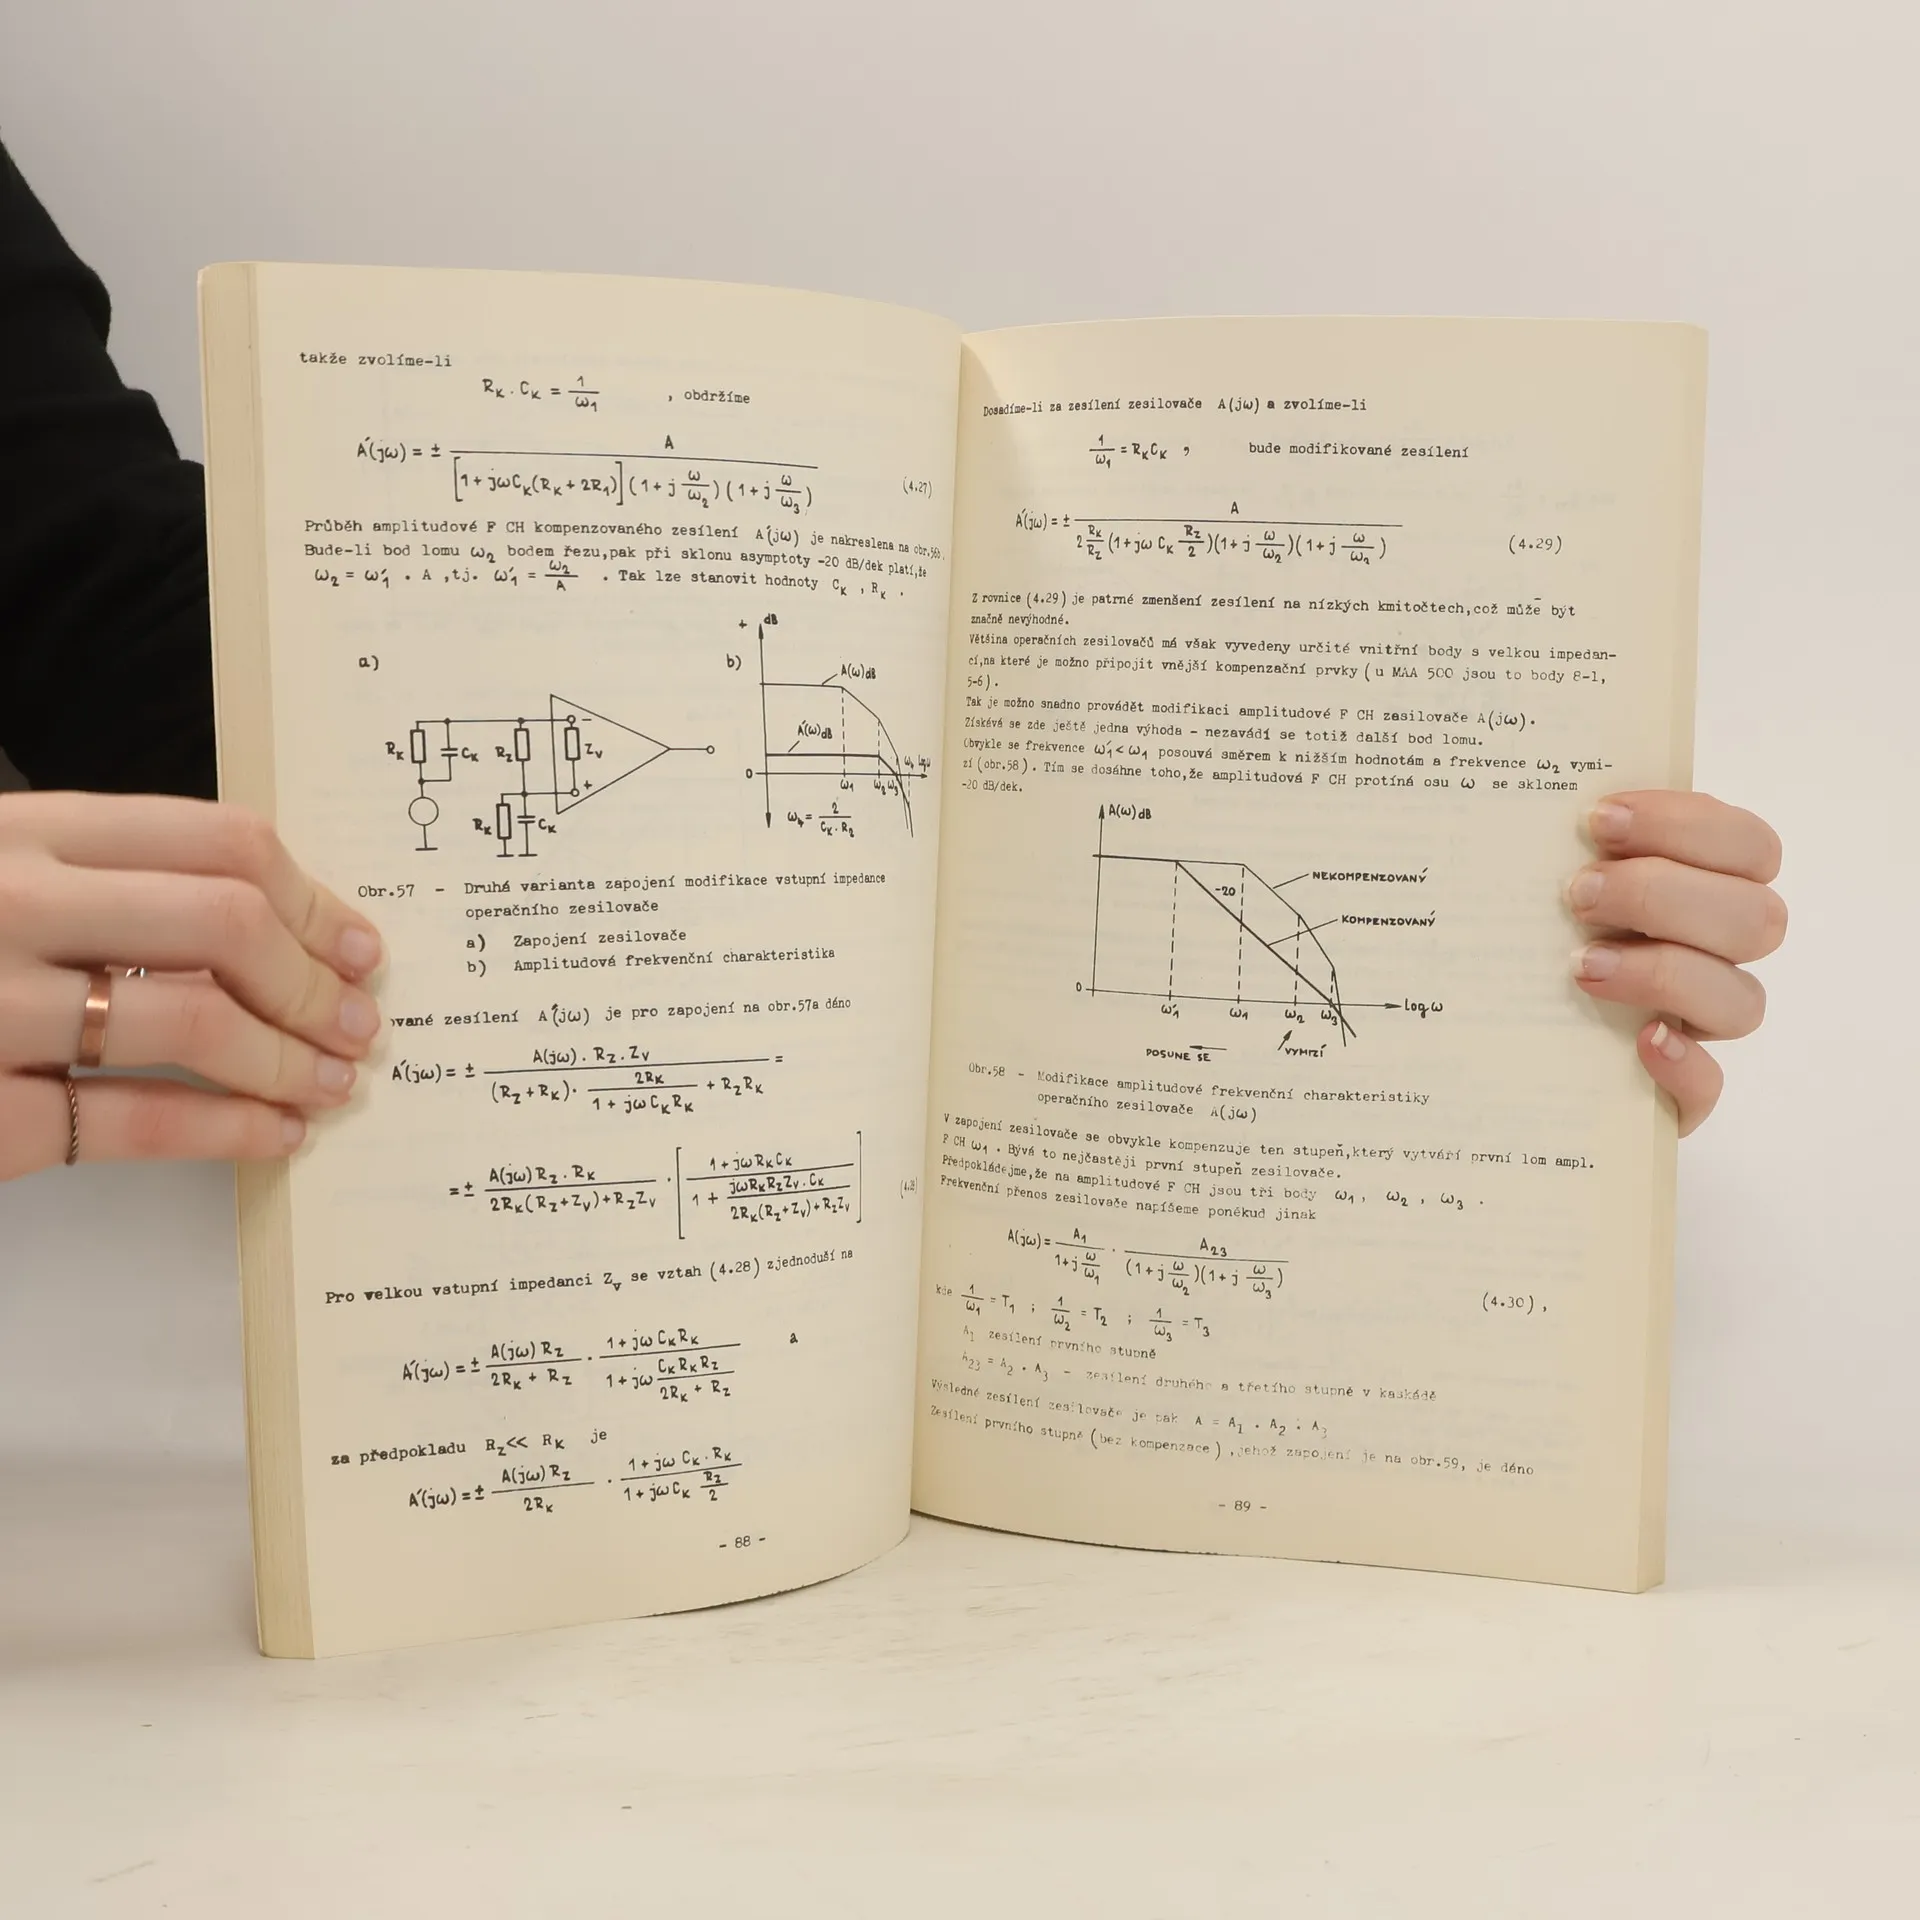 takže zvolíme-li
R_K . C_K = 1/ω₁ , obdržíme
A′(jω) = ± A / [1 + jωC_K(R_K + 2R₁)](1 + j ω/ω₂)(1 + j ω/ω₃) (4.27)
Průběh amplitudové F CH kompenzovaného zesílení A′(jω) je nakreslena na obr.56b.
Bude-li bod lomu ω₂ bodem řezu,pak při sklonu asymptoty -20 dB/dek platí,že
ω₂ = ω′₁ . A ,tj. ω′₁ = ω₂/A . Tak lze stanovit hodnoty C_K , R_K .
a)
R_K C_K R_Z Z_V - +
R_K C_K
b)
+ dB
A(ω)dB
A′(ω)dB
0 ω₁ ω₂ ω₃ ω₄ log ω
ω₄ = 2 / C_K . R_Z
Obr.57 - Druhá varianta zapojení modifikace vstupní impedance
operačního zesilovače
a) Zapojení zesilovače
b) Amplitudová frekvenční charakteristika
ované zesílení A′(jω) je pro zapojení na obr.57a dáno
A′(jω) = ± A(jω) . R_Z . Z_V / (R_Z + R_K) . 2R_K / 1 + jωC_K R_K + R_Z R_K =
= ± A(jω) R_Z . R_K / 2R_K(R_Z + Z_V) + R_Z Z_V . [1 + jωR_K C_K / 1 + jωR_K R_Z Z_V . C_K / 2R_K(R_Z + Z_V) + R_Z Z_V] (4.28)
Pro velkou vstupní impedanci Z_V se vztah (4.28) zjednoduší na
A′(jω) = ± A(jω) R_Z / 2R_K + R_Z . 1 + jω C_K R_K / 1 + jω C_K R_K R_Z / 2R_K + R_Z a
za předpokladu R_Z << R_K je
A′(jω) = ± A(jω) R_Z / 2R_K . 1 + jω C_K . R_K / 1 + jω C_K R_Z/2
- 88 -
Dosadíme-li za zesílení zesilovače A(jω) a zvolíme-li
1/ω₁ = R_K C_K , bude modifikované zesílení
A′(jω) = ± A / 2 R_K/R_Z (1 + jω C_K R_Z/2)(1 + j ω/ω₂)(1 + j ω/ω₃) (4.29)
Z rovnice (4.29) je patrné zmenšení zesílení na nízkých kmitočtech,což může být
značně nevýhodné.
Většina operačních zesilovačů má však vyvedeny určité vnitřní body s velkou impedan-
cí,na které je možno připojit vnější kompenzační prvky (u MAA 500 jsou to body 8-1,
5-6).
Tak je možno snadno provádět modifikaci amplitudové F CH zesilovače A(jω).
Získává se zde ještě jedna výhoda - nezavádí se totiž další bod lomu.
Obvykle se frekvence ω′₁ < ω₁ posouvá směrem k nižším hodnotám a frekvence ω₂ vymi-
zí (obr.58). Tím se dosáhne toho,že amplitudová F CH protíná osu ω se sklonem
-20 dB/dek.
A(ω)dB
NEKOMPENZOVANÝ
-20
KOMPENZOVANÝ
0 ω′₁ ω₁ ω₂ ω₃ log ω
POSUNE SE VYMIZÍ
Obr.58 - Modifikace amplitudové frekvenční charakteristiky
operačního zesilovače A(jω)
V zapojení zesilovače se obvykle kompenzuje ten stupeň,který vytváří první lom ampl.
F CH ω₁ . Bývá to nejčastěji první stupeň zesilovače.
Předpokládejme,že na amplitudové F CH jsou tři body ω₁ , ω₂ , ω₃ .
Frekvenční přenos zesilovače napíšeme poněkud jinak
A(jω) = A₁ / 1 + j ω/ω₁ . A₂₃ / (1 + j ω/ω₂)(1 + j ω/ω₃) (4.30) ,
kde 1/ω₁ = T₁ ; 1/ω₂ = T₂ ; 1/ω₃ = T₃
A₁ zesílení prvního stupně
A₂₃ = A₂ . A₃ - zesílení druhého a třetího stupně v kaskádě
Výsledné zesílení zesilovače je pak A = A₁ . A₂ . A₃
Zesílení prvního stupně (bez kompenzace) ,jehož zapojení je na obr.59, je dáno
- 89 -